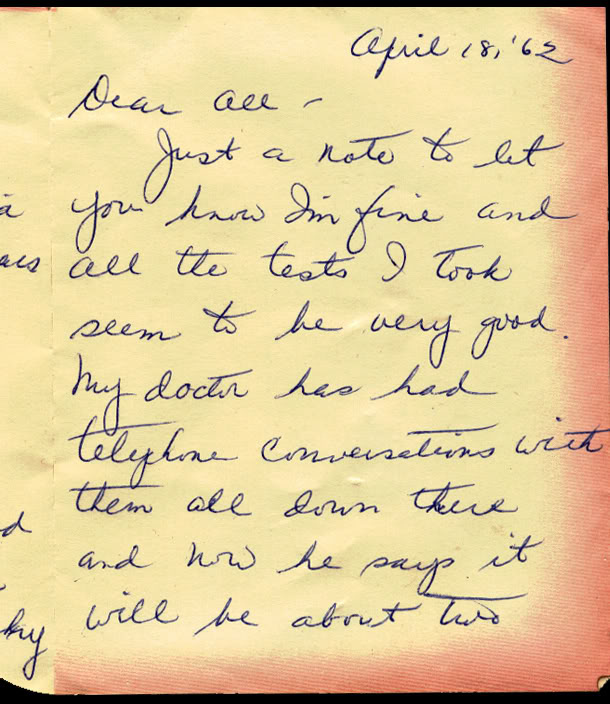 April 18, '62
Dear all -
Just a note to let
you know I'm fine and
all the tests I took
seem to be very good.
My doctor has had
telephone conversations with
them all down there
and now he says it
will be about two